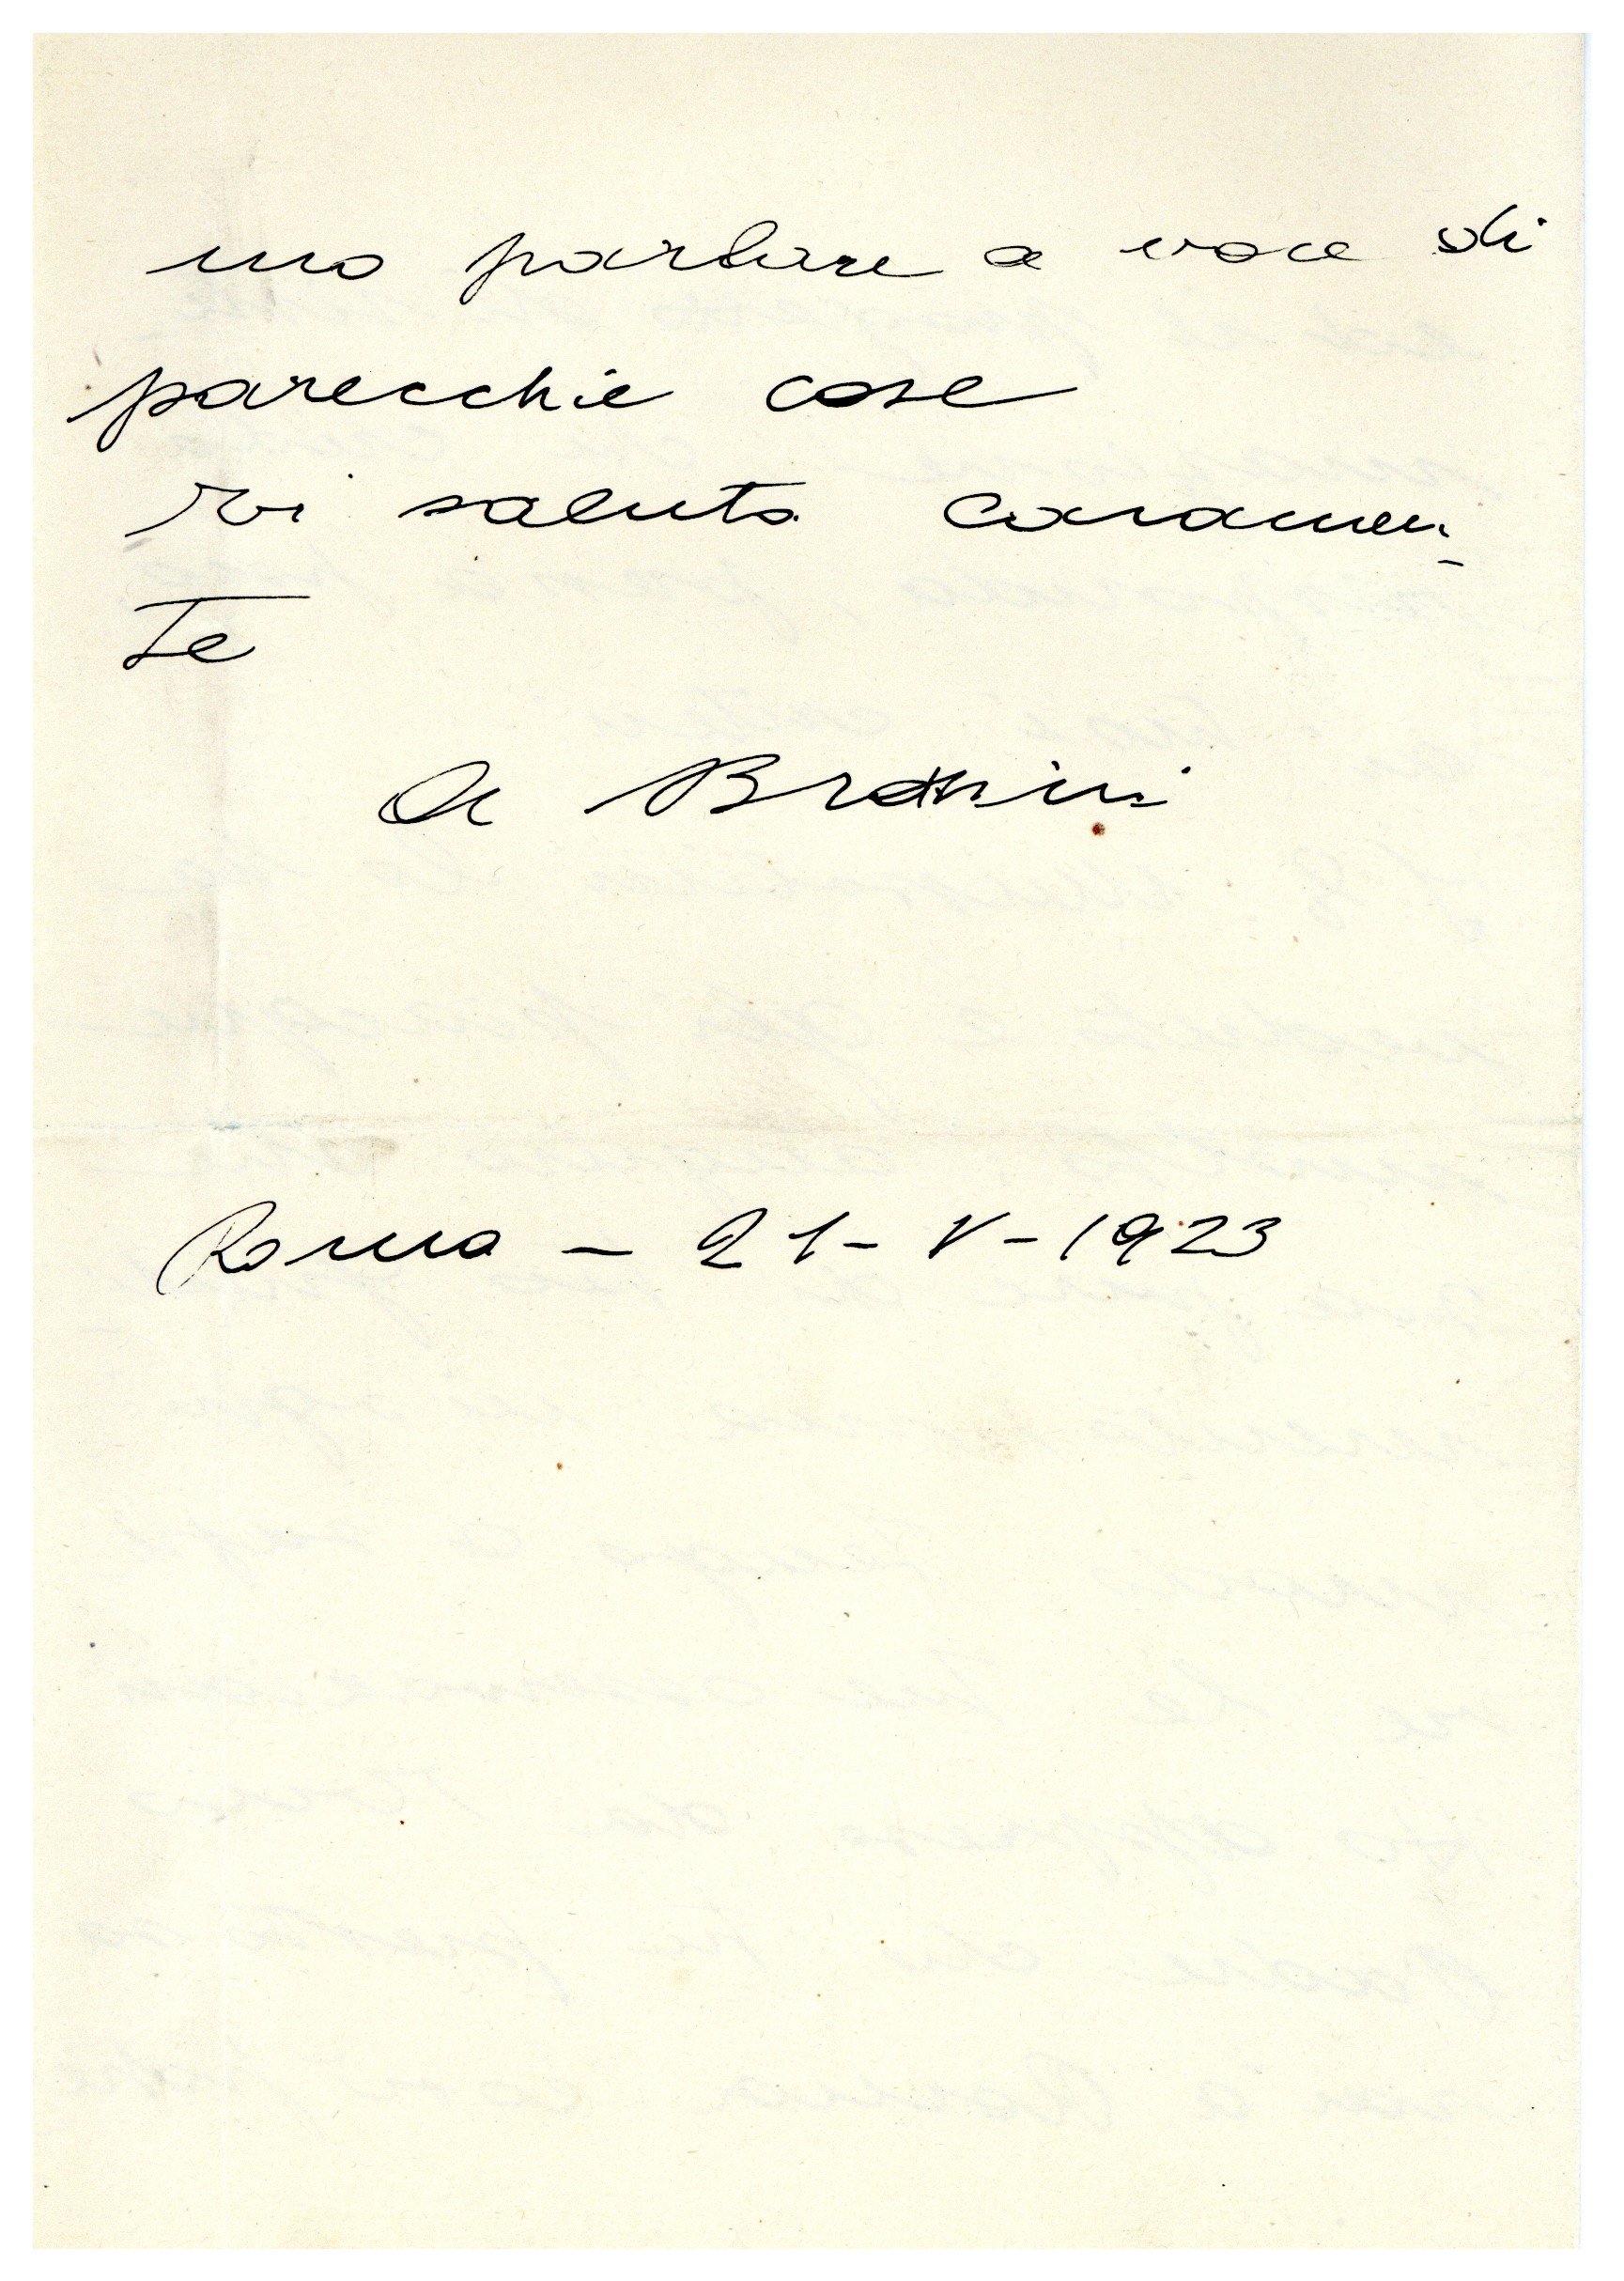 mo parlare a voce di
parecchie cose
Vi saluto caramen-
te
A Brasini
Roma - 21 - V - 1923